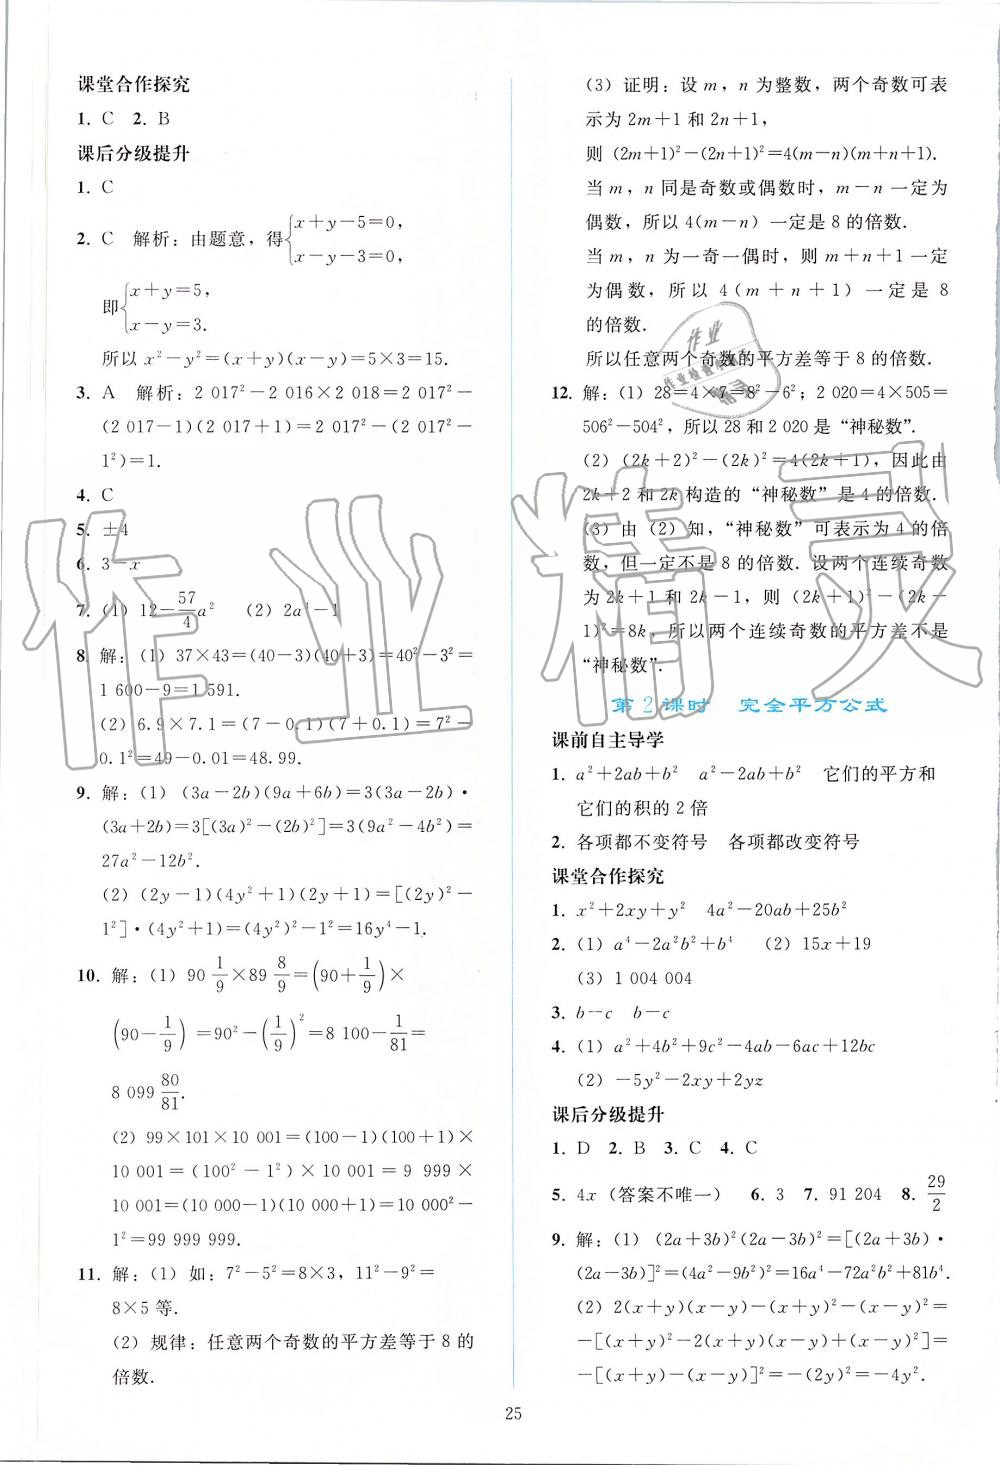 课堂合作探究
1. C  2. B
课后分级提升
1. C
2. C  解析：由题意，得{x＋y－5＝0，
x－y－3＝0，
即{x＋y＝5，
x－y＝3.
所以 x²－y²＝(x＋y)(x－y)＝5×3＝15.
3. A  解析：2 017²－2 016×2 018＝2 017²－
(2 017－1)(2 017＋1)＝2 017²－(2 017²－
1²)＝1.
4. C
5. ±4
6. 3－x
7. (1) 12－57/4 a²  (2) 2a⁴－1
8. 解：(1) 37×43＝(40－3)(40＋3)＝40²－3²＝
1 600－9＝1 591.
(2) 6.9×7.1＝(7－0.1)(7＋0.1)＝7²－
0.1²＝49－0.01＝48.99.
9. 解：(1) (3a－2b)(9a＋6b)＝3(3a－2b)·
(3a＋2b)＝3[(3a)²－(2b)²]＝3(9a²－4b²)＝
27a²－12b².
(2) (2y－1)(4y²＋1)(2y＋1)＝[(2y)²－
1²]·(4y²＋1)＝(4y²)²－1²＝16y⁴－1.
10. 解：(1) 90 1/9×89 8/9＝(90＋1/9)×
(90－1/9)＝90²－(1/9)²＝8 100－1/81＝
8 099 80/81.
(2) 99×101×10 001＝(100－1)(100＋1)×
10 001＝(100²－1²)×10 001＝9 999×
10 001＝(10 000－1)(10 000＋1)＝10 000²－
1²＝99 999 999.
11. 解：(1) 如：7²－5²＝8×3，11²－9²＝
8×5 等.
(2) 规律：任意两个奇数的平方差等于 8 的
倍数.
(3) 证明：设 m，n 为整数，两个奇数可表
示为 2m＋1 和 2n＋1，
则 (2m＋1)²－(2n＋1)²＝4(m－n)(m＋n＋1).
当 m，n 同是奇数或偶数时，m－n 一定为
偶数，所以 4(m－n) 一定是 8 的倍数.
当 m，n 为一奇一偶时，则 m＋n＋1 一定
为偶数，所以 4(m＋n＋1) 一定是 8
的倍数.
所以任意两个奇数的平方差等于 8 的倍数.
12. 解：(1) 28＝4×7＝8²－6²；2 020＝4×505＝
506²－504²，所以 28 和 2 020 是“神秘数”.
(2) (2k＋2)²－(2k)²＝4(2k＋1)，因此由
2k＋2 和 2k 构造的“神秘数”是 4 的倍数.
(3) 由 (2) 知，“神秘数”可表示为 4 的倍
数，但一定不是 8 的倍数. 设两个连续奇数
为 2k＋1 和 2k－1，则 (2k＋1)²－(2k－
1)²＝8k，所以两个连续奇数的平方差不是
“神秘数”.
第 2 课时  完全平方公式
课前自主导学
1. a²＋2ab＋b²  a²－2ab＋b²  它们的平方和
它们的积的 2 倍
2. 各项都不变符号  各项都改变符号
课堂合作探究
1. x²＋2xy＋y²  4a²－20ab＋25b²
2. (1) a⁴－2a²b²＋b⁴  (2) 15x＋19
(3) 1 004 004
3. b－c  b－c
4. (1) a²＋4b²＋9c²－4ab－6ac＋12bc
(2) －5y²－2xy＋2yz
课后分级提升
1. D  2. B  3. C  4. C
5. 4x（答案不唯一）  6. 3  7. 91 204  8. 29/2
9. 解：(1) (2a＋3b)²(2a－3b)²＝[(2a＋3b)·
(2a－3b)]²＝(4a²－9b²)²＝16a⁴－72a²b²＋81b⁴.
(2) 2(x＋y)(x－y)－(x＋y)²－(x－y)²＝
－[(x＋y)²－2(x＋y)(x－y)＋(x－y)²]＝
－[(x＋y)－(x－y)]²＝－(2y)²＝－4y².
25
作业精灵